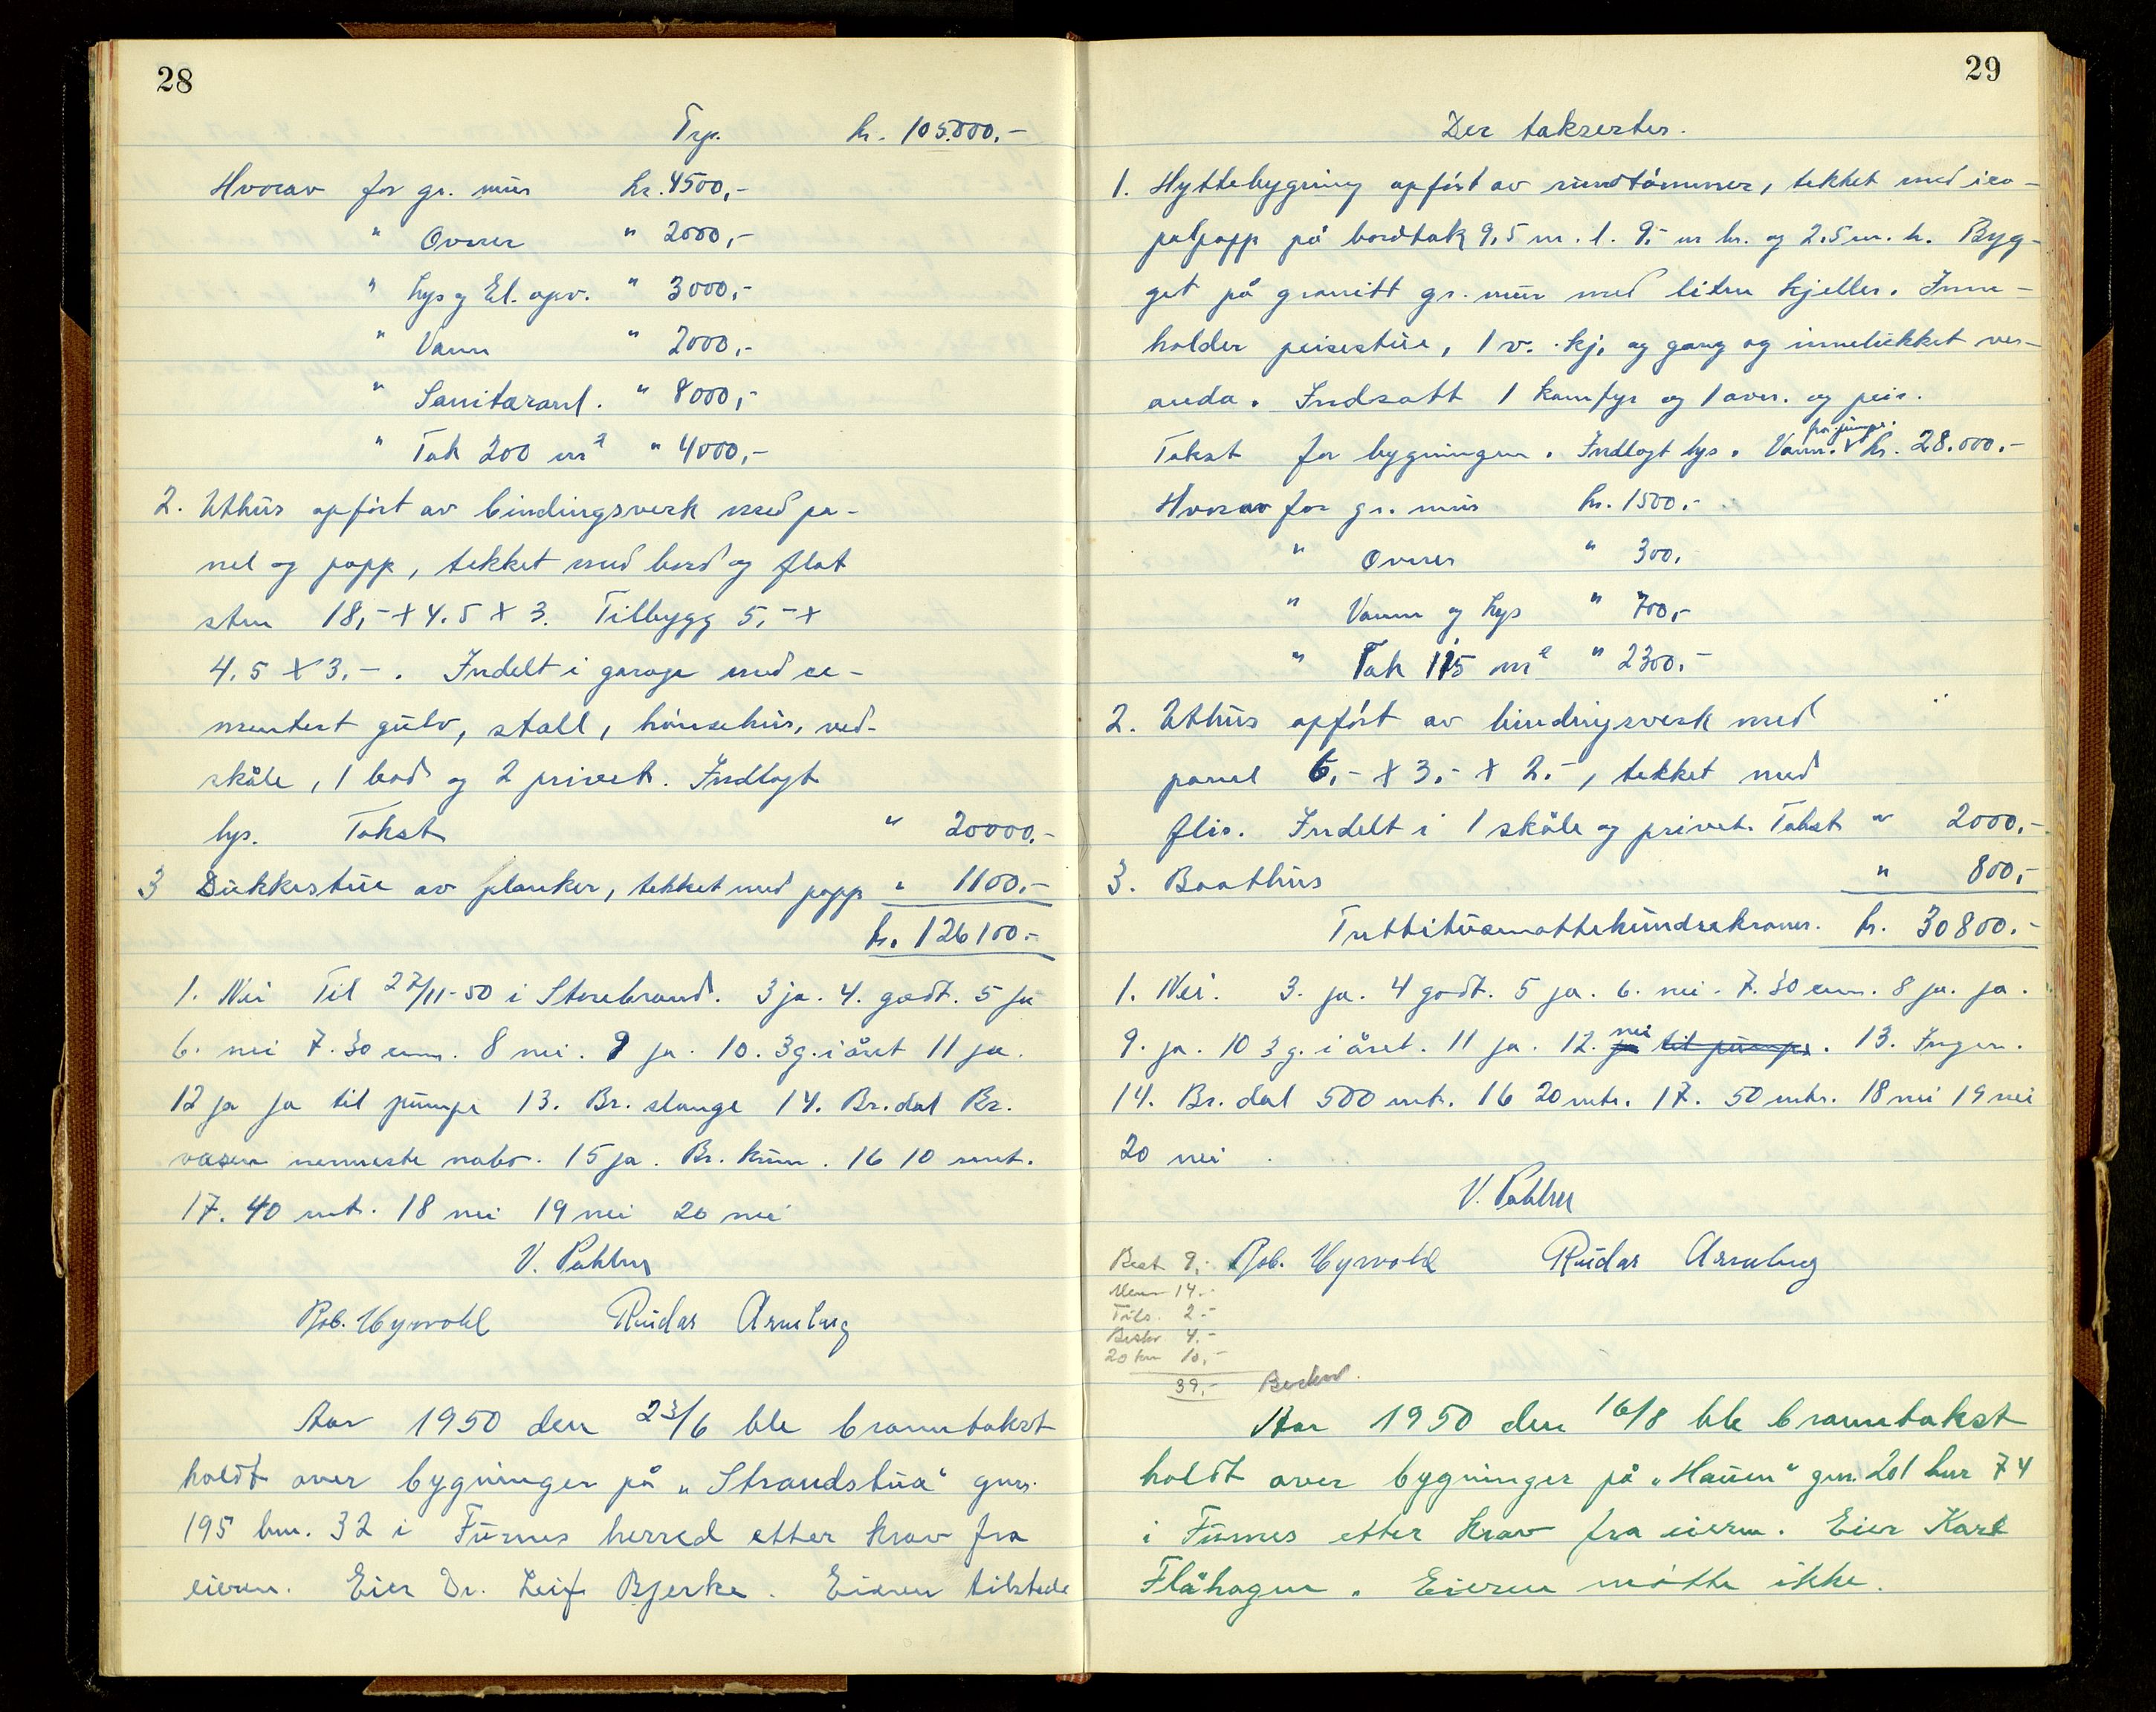 28
Trp. kr. 105.000,-
Hvorav for gr. mur kr. 4500,-
" Ovner " 2000,-
" Lys og El. opv. " 3000,-
" Vann " 2000,-
" Sanitæranl. " 8000,-
" Tak 200 m² " 4000,-
2. Uthus opført av bindingsverk med pa-
nel og papp, tekket med bord og flat
sten 18,- x 4.5 x 3. Tilbygg 5,- x
4.5 x 3.-. Indelt i garage med se-
mentert gulv, stall, hönsehus, ved-
skåle, 1 bod og 2 privet. Indlagt
lys. Takst " 20000.-
3 Dukkestue av planker, tekket med papp " 1100.-
kr. 126100.-
1. Nei Til 27/11-50 i Storebrand. 3 ja. 4. godt. 5 ja
6. nei 7. 30 cm. 8 nei. 9 ja. 10. 3 g. i året 11 ja.
12 ja ja til pumpe 13. Br. slange 14. Br.dal Br.
væsen nermeste nabo. 15 ja. Br. kum. 16 10 mt.
17. 40 mt. 18 nei 19 nei 20 nei
V. Pahlm
Rob. Hyrvold Ruidar Arneberg
Aar 1950 den 23/6 ble branntakst
holdt over bygninger på „Strandstua" gnr.
195 bnr. 32 i Furnes herred etter krav fra
eieren. Eier Dr. Leif Bjerke. Eieren tilstede
29
Der taksertes.
1. Hyttebygning opført av rundtömmer, tekket med iso-
palpapp på bordtak 9,5 m. l. 9,- m br. og 2.5 m. h. Byg-
get på granitt gr. mur med liten kjeller. Inne-
holder peisestue, 1 v. kj. og gang og innelukket ver-
anda. Indsatt 1 komfyr og 1 ovn. og peis.
Takst for bygningen. Indlagt lys. Vann. fra pumpe. kr. 28.000.-
Hvorav for gr. mur kr. 1500.-
" Ovner " 300,
" Vann og Lys " 700,-
" Tak 115 m² " 2300.-
2. Uthus opført av bindingsverk med
panel 6,- x 3,- x 2.-, tekket med
flis. Indelt i 1 skåle og privet. Takst " 2000,-
3. Baathus " 800,-
Trettitusenottehundrekroner. kr. 30800.-
1. Nei. 3. ja. 4 godt. 5 ja. 6. nei. 7. 30 cm. 8 ja. ja.
9. ja. 10 3 g. i året. 11 ja. 12. ja nei til pumpe. 13. Ingen.
14. Br. dal 500 mt. 16 20 mtr. 17. 50 mtr. 18 nei 19 nei
20 nei
V. Pahlm
Rob. Hyrvold Ruidar Arneberg
Best 9,-
14.-
Tils. 2.-
Beskr 4.-
20 km 10,-
39,-
Aar 1950 den 16/8 ble branntakst
holdt over bygninger på „Hauen" gnr. 201 bnr 74
i Furnes etter krav fra eieren. Eier Karl
Flåhagen. Eieren møtte ikke.